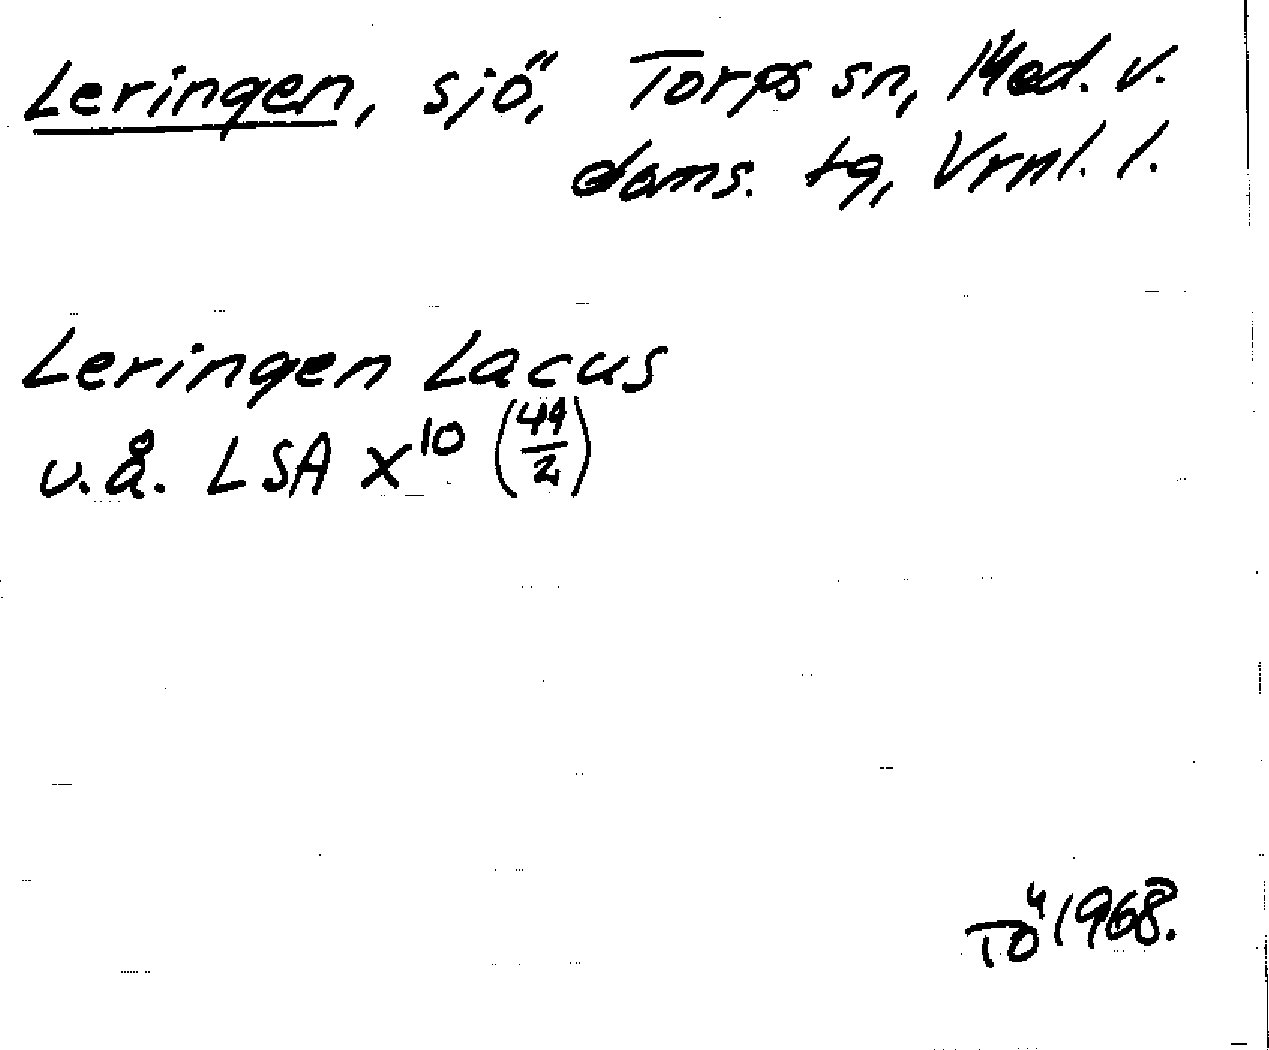 Leringen, sjö, Torps sn, Med. v.
doms. tg, Vrnl. l.
Leringen Lacus
u.å. LSA X¹⁰ (44/2)
TÖ 1968.